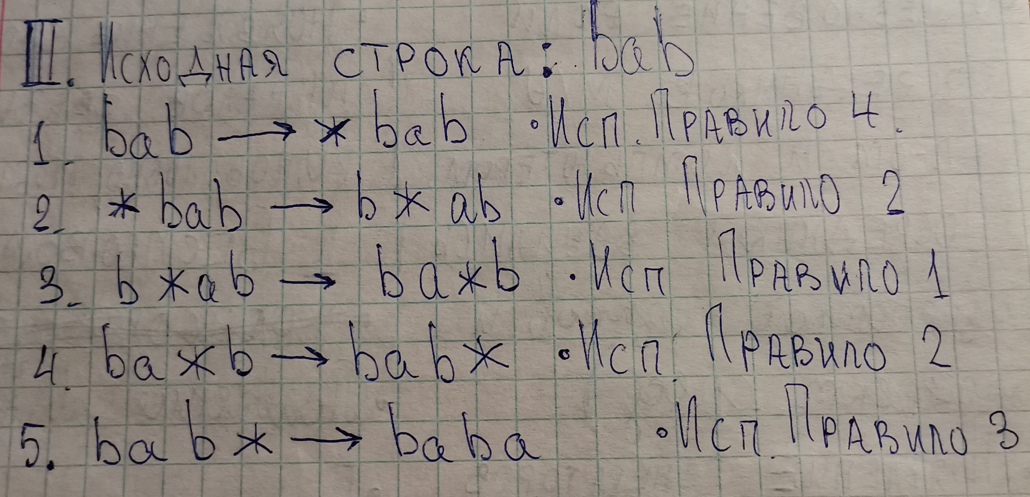 III. Исходная строка: bab
1. bab → * bab • Исп. Правило 4.
2. * bab → b * ab • Исп Правило 2
3. b * ab → ba * b • Исп Правило 1
4. ba * b → bab * • Исп. Правило 2
5. bab * → baba • Исп. Правило 3